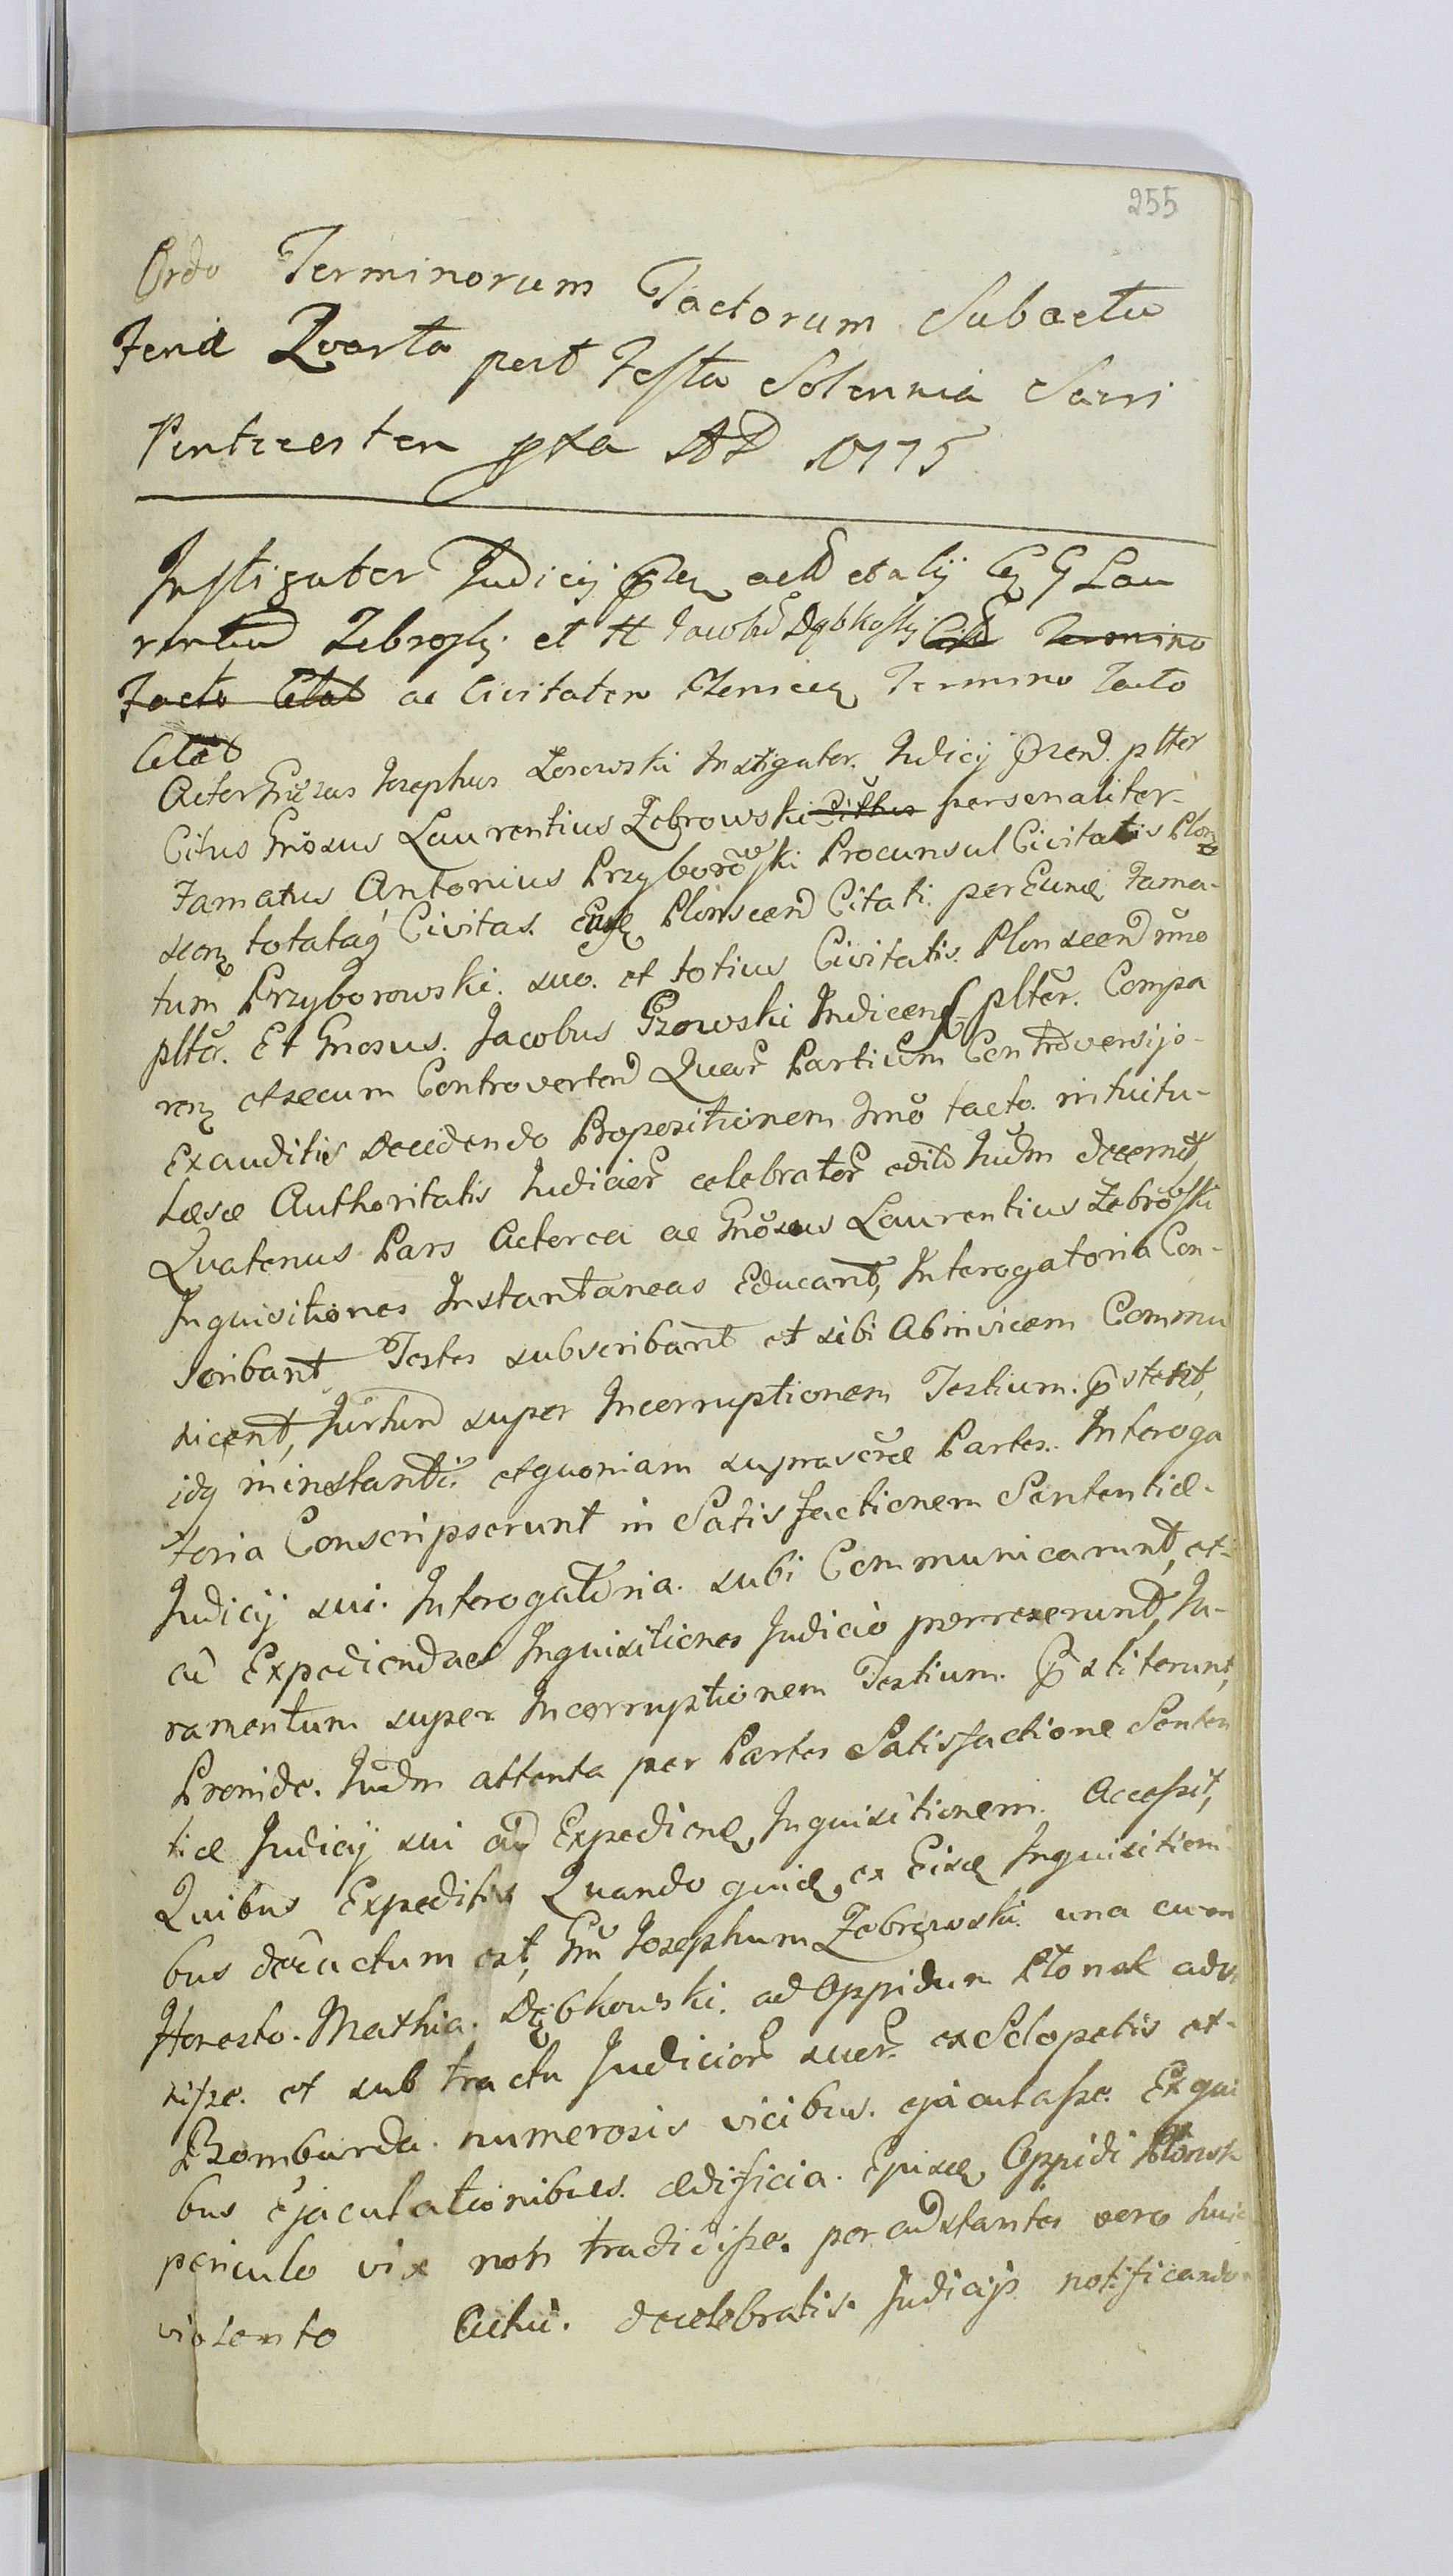 255
Ordo Terminorum Tactorum Subactu
Feria Qvarta post Festa Solennia Sacri
Pentecosten pxa AD 1775
Instigator Judicij actu et alij Lau
rentiu Zebroski et H Jacobu Dąbkoski Citt Termino
Tacto Citat ac Civitatem Termino Tacto
Citat
Actor Gnrsus Josephus Losowski Instigator. Judicij pltter
Citus Gnosus Laurentius Zebrowski Cittus personaliter
Famatus Antonius Przyborowski Proconsul Civitatis Plon
scen totataq Civitas. Eusq Plonscen Citati. per Eunq Fama-
tum Przyborowski. suo. et totius Civitatis. Plonscen nne
plter. Et Gnosus. Jacobus Gzowski Indicens plter. Compa
ren et secum Controverten Quar Partium Controversijs-
Exauditis Decidendo Propositionem Imo tacto. intuitu-
Læsæ Authoritatis Judicior celebrator edit Judm decernit,
Qvatenus Pars Actorea ac Gnosus Laurentius Zebrowski
Inquisitiones Instantaneas Educant, Interogatoria Con-
scribant, Testes subscribant et sibi Abinvicem Commu
nicent, Jurtum super Incorruptionem Testium. pstent,
idq ininstanti. et quoniam suprascræ Partes. Interoga
toria Conscripserunt in Satisfactionem Sententiæ.
Judicij sui. Interogatoria. subi Communicarunt, et-
ad Expediendas Inquisitiones Judicio porrexerunt, Ju-
ramentum super Incorruptionem Testium. pstiterunt,
Proinde. Judm attenta per Partes Satisfactione Senten
tiæ Judicij sui ad Expedienq Inquisitionem. Accessit,
Quibus Expeditis Quando quid, ex Eisq Inquisitioni
bus deductum est, Gn Josephum Zebrowski. una cum
Honesto. Mathia. Dębkowski. ad Oppidum Płonsk adve
nisse. et sub tractu Judicior suor. ex Sclopetis et-
Bombarda. numerosis vicibus. ejaculasse. Ex qui
bus ejaculationibus. ædificia. Epusq Oppidi Płonsk
periculo vix non tradidisse. per adstantes vero huic
violento Actui. decelebratis. Judicijs notificando